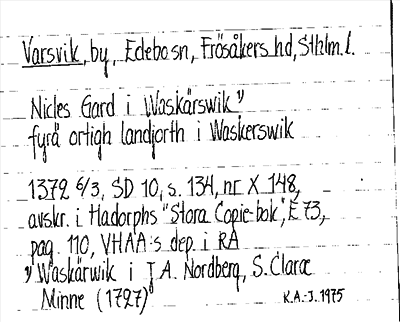 Varsvik, by, Edebo sn, Frösåkers hd, Sthlm. l.
Nicles Gard i Waskärswik ⁾⁾
fyrä ortigh landjorth i Waskerswik
1372 6/3, SD 10, s. 134, nr X 148,
avskr. i Hadorphs "Stora Copie-bok", E 73,
pag. 110, VHAA:s dep. i RA
⁾⁾ Waskärwik i J A. Nordberg, S. Claræ
Minne (1727)
K.A.-J. 1975